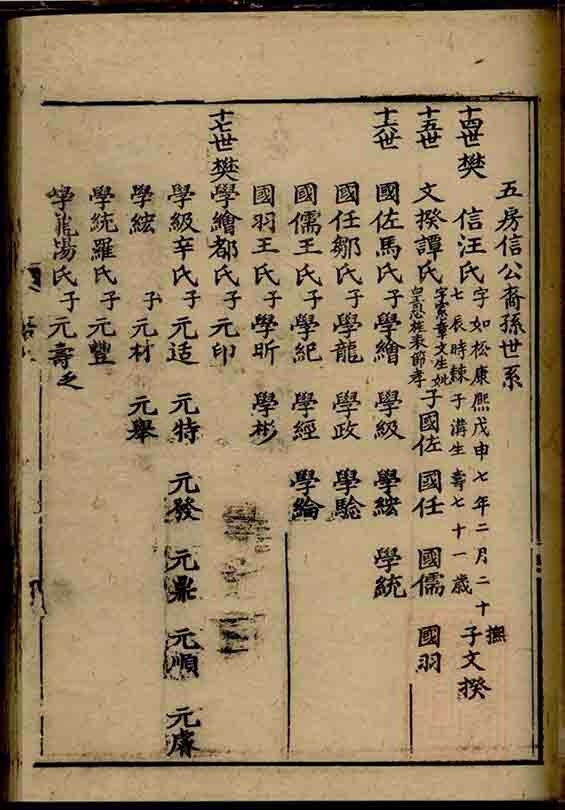 五房信公裔孫世系
十四世樊 信汪氏字如松康熙戊申七年二月二十七辰時練子溝生壽七十一歲 撫子文揆
十五世 文揆譚氏 文生 節孝 子國佐 國任 國儒 國羽
十六世 國佐馬氏子學繪 學級 學綋 學統
國任鄒氏子學龍 學政 學騐
國儒王氏子學紀 學經 學綸
國羽王氏子學昕 學彬
十七世樊學繪都氏子元印
學級辛氏子元适 元特 元發 元鼎 元順 元廉
學綋 子元材 元舉
學統羅氏子元豐
學龍湯氏子元壽之